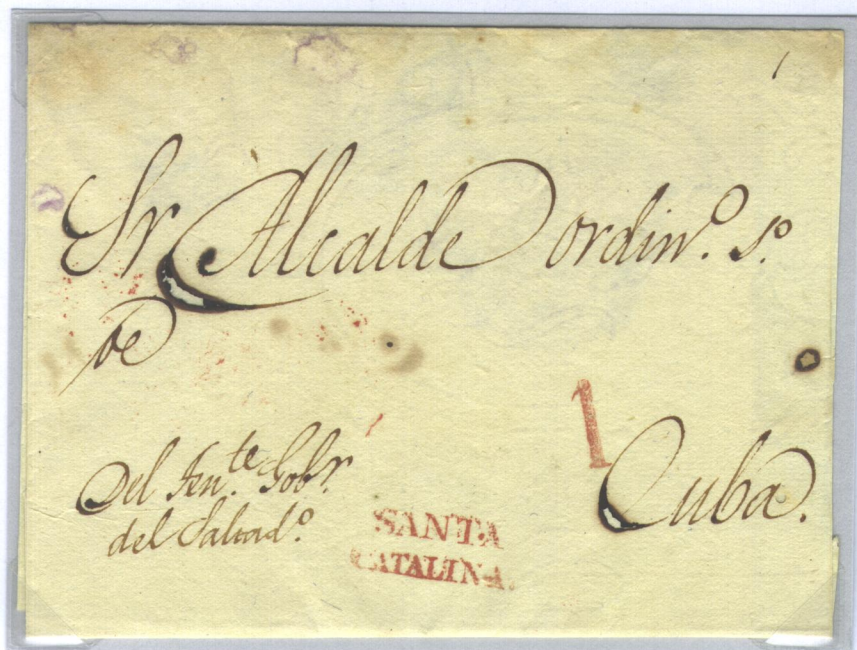 Sr Alcalde ordin.º 1.º
de
1
Cuba.
Del Ten.te Gobr.
del Saltad.º
SANTA
CATALINA.